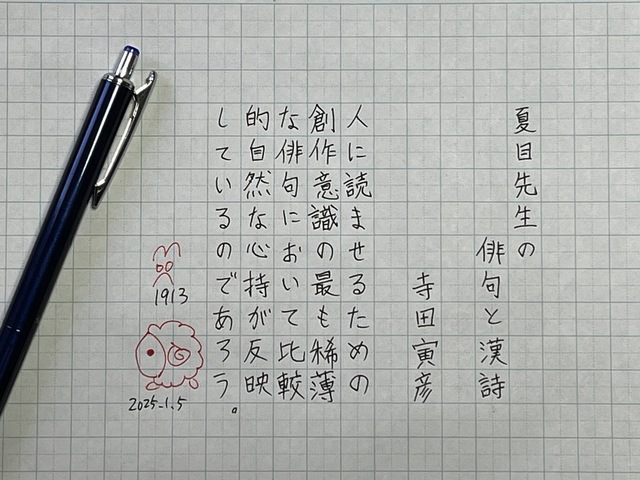 夏目先生の
俳句と漢詩
寺田寅彦
人に読ませるための
創作意識の最も稀薄
な俳句において比較
的自然な心持が反映
しているのであろう。
1913
2025.1.5